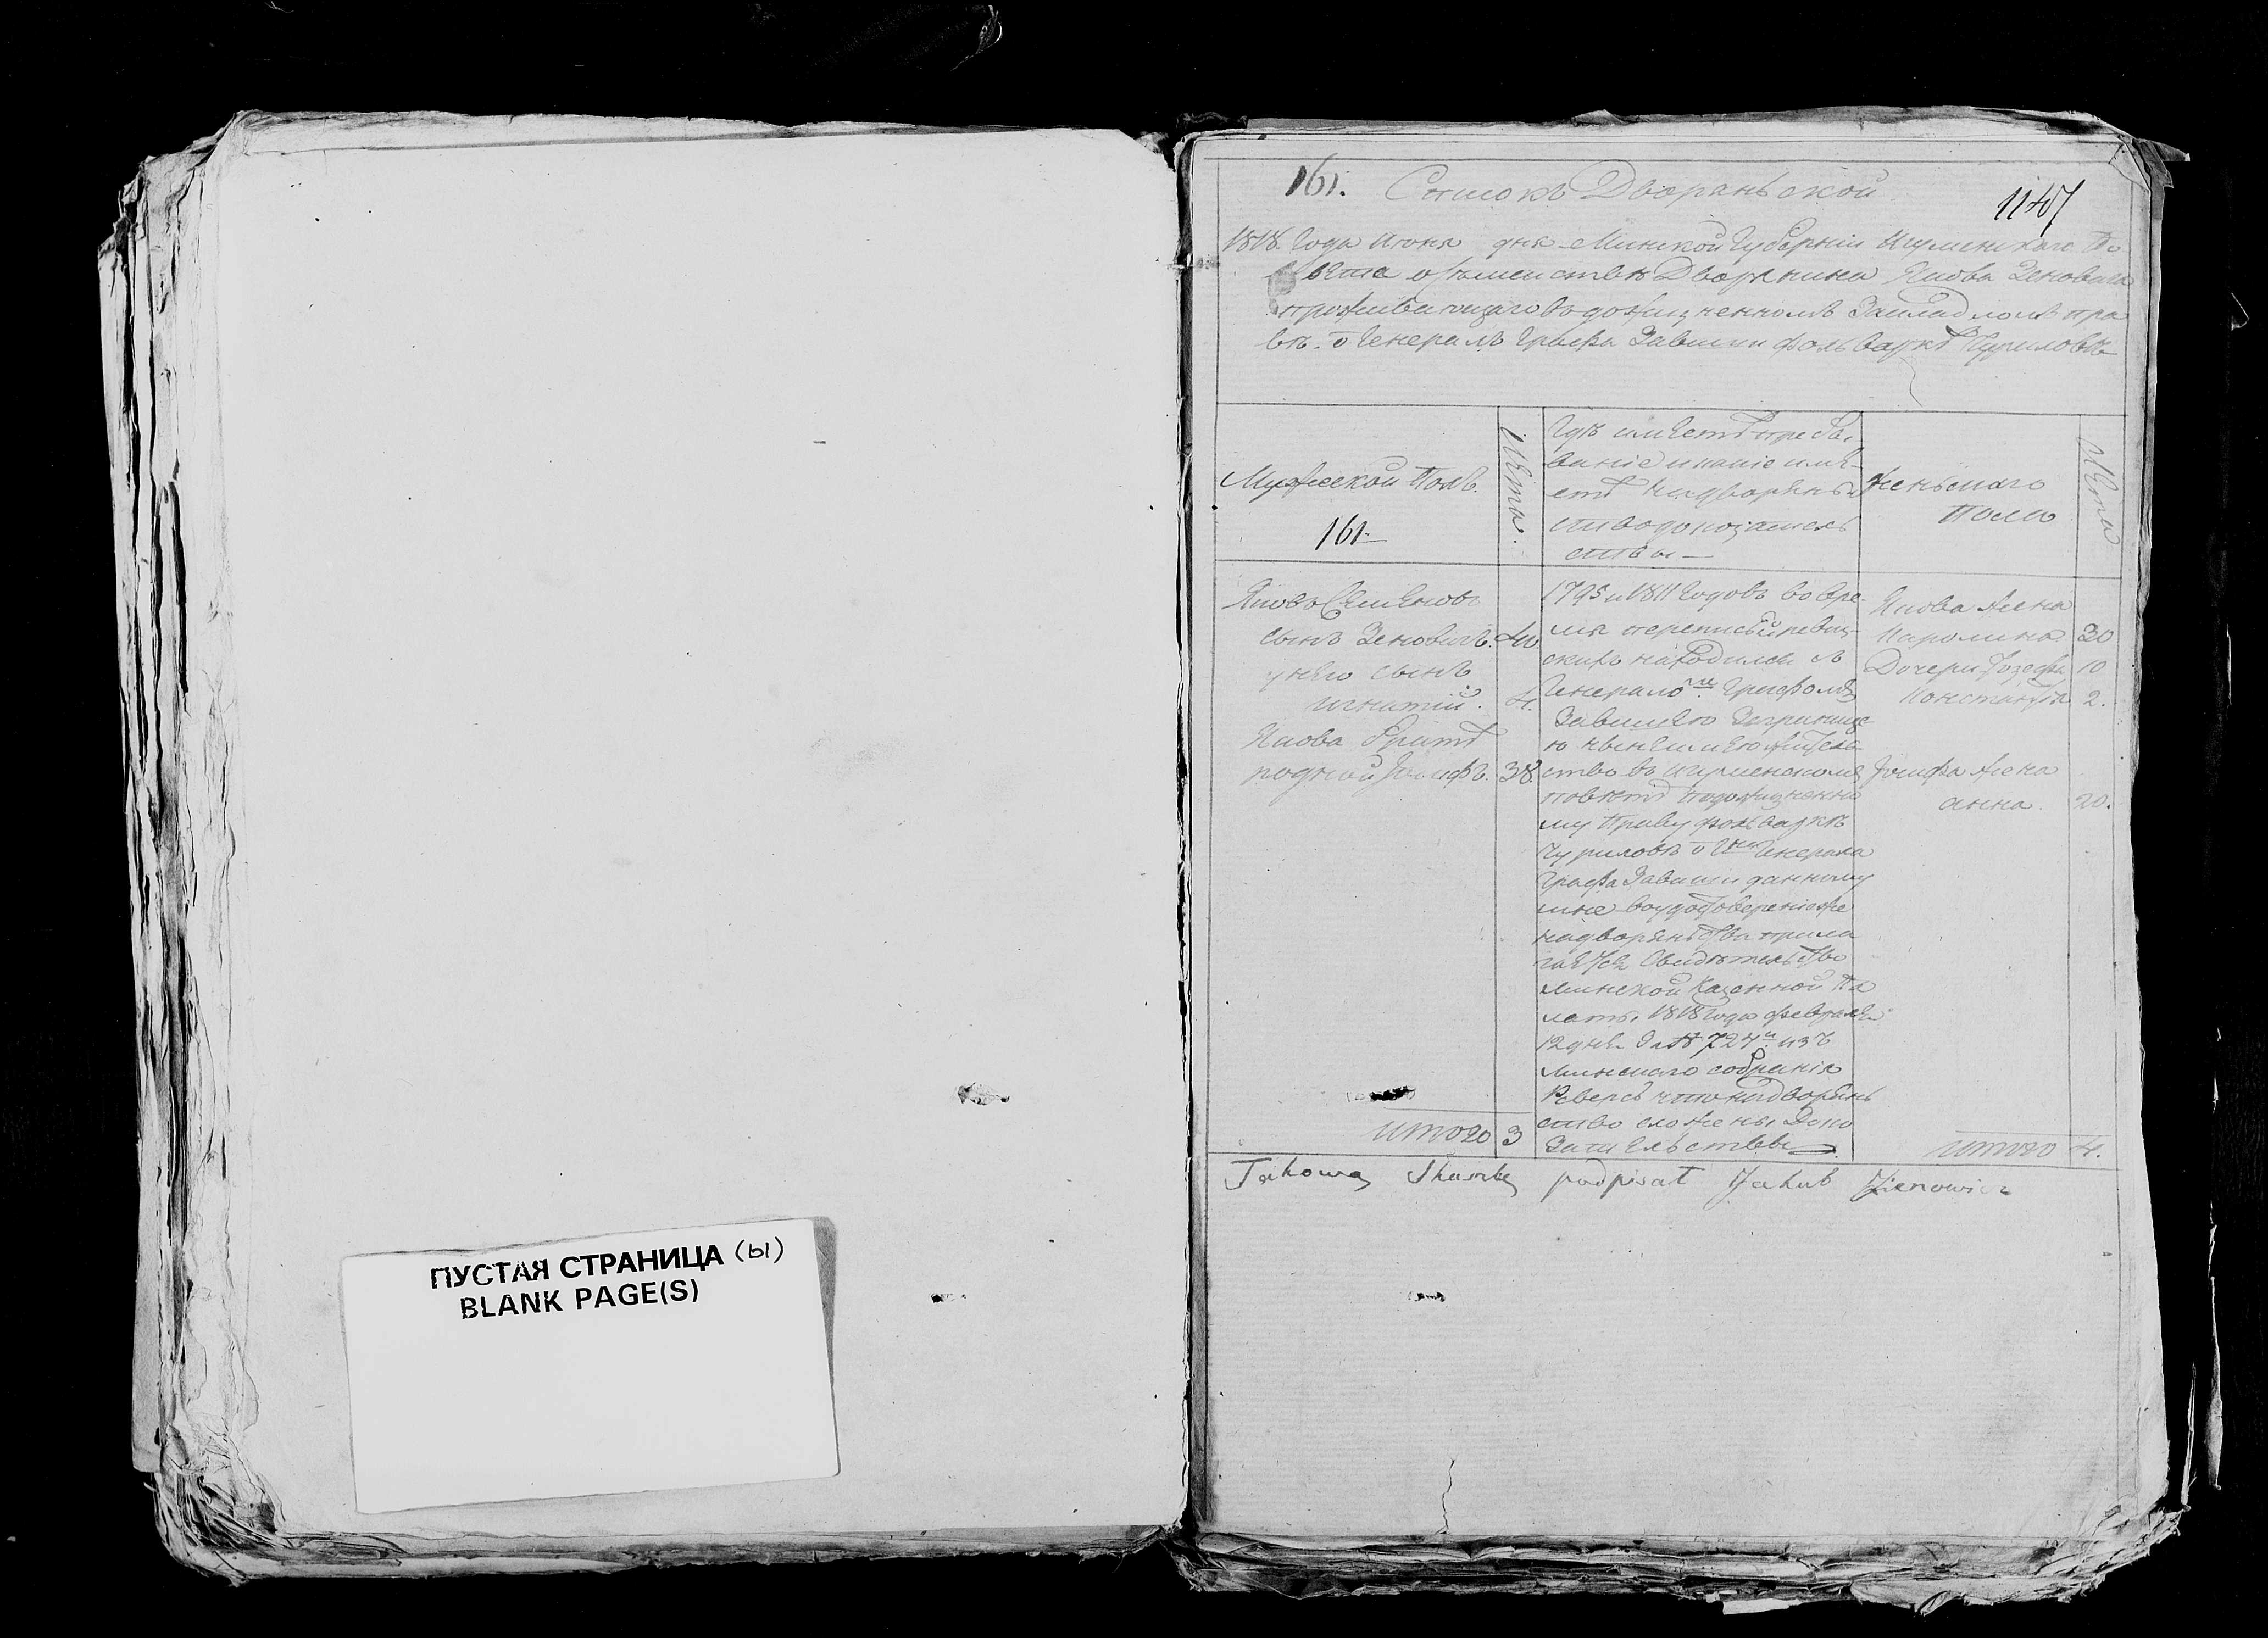 ПУСТАЯ СТРАНИЦА (ы)
BLANK PAGE(S)
161. Списокъ Дворянской
1147
1818. Года Июня дня Минской Губернии Игуменскаго По
вета о семействе Дворянина Якова Зеновича
проживающаго в пожизненномъ Закладномъ пра
ве. Генерала Графа Завиши фольварке Чуриловке
Мужеской Полъ.
161.
Лета.
Где имеетъ пребы
вание и какие име
етъ на дворянь
ство доказатель
ствы
Женьскаго
Пола
Лета
Яковъ Семеновъ
сынъ Зеновичъ. 40.
у него сынъ
игнатий. 4.
Якова братъ
родной Иосифъ. 38.
1795 и 1811 Годовъ во вре
мя переписи ревиз
скихъ находился съ
Генераломъ Графомъ
Завишею Заграницe
ю нынеш его житель
ство въ игуменскомъ
повете по пожизненно
му Праву фольварке
Чуриловке Генерала
Графа Завиши данному
мне во удостоверение же
на дворянства прила
гается Свидетельство
минской Казенной Па
латы, 1818 Года февраля
12 дня За № 724 изъ
минскаго собрания
Реверсъ что на дворянь
ство сложены Дока
Зательствы
Якова жена
Каролина 30
Дочери Иозефа 10
Констанция 2.
Иосифа жена
анна. 20.
итого 3
итого 4.
Takową Skaskę podpisał Jakub Zienowicz